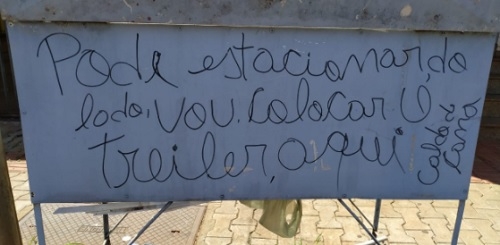 Pode estacionar, do
lado, vou. colocar. O,
treiler, aqui
Caldo de
Cana